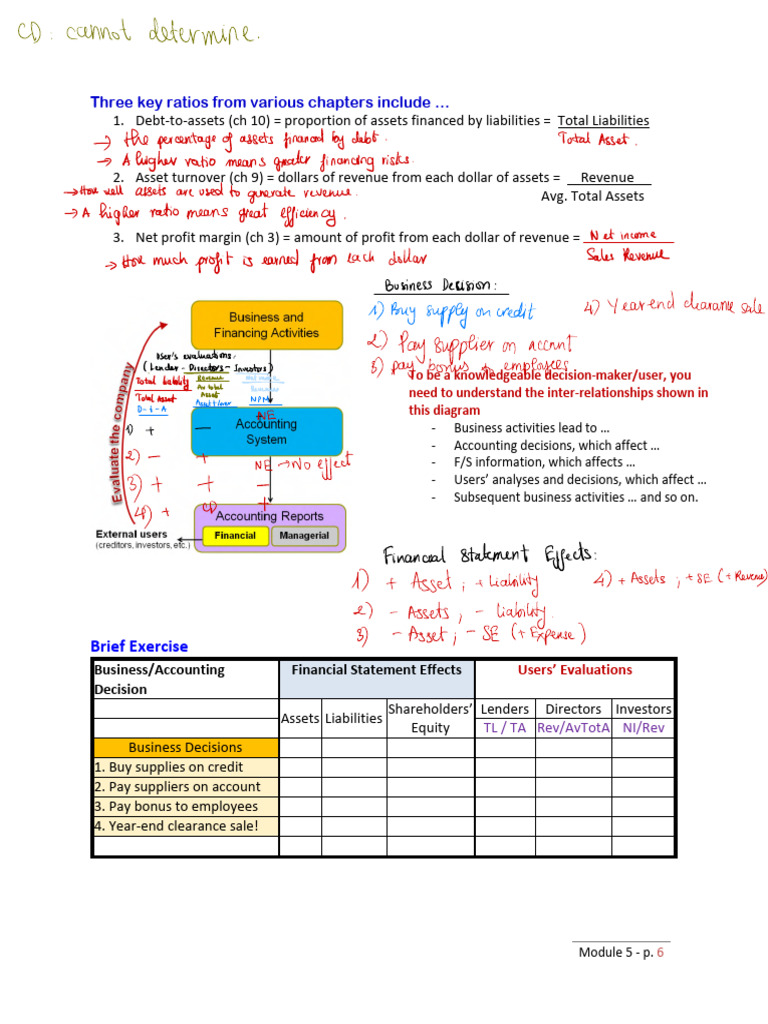 CD: cannot determine.
Three key ratios from various chapters include …
1. Debt-to-assets (ch 10) = proportion of assets financed by liabilities = Total Liabilities
→ the percentage of assets financed by debt. Total Asset.
→ A higher ratio means greater financing risks.
2. Asset turnover (ch 9) = dollars of revenue from each dollar of assets = Revenue
→ How well assets are used to generate revenue. Avg. Total Assets
→ A higher ratio means great efficiency.
3. Net profit margin (ch 3) = amount of profit from each dollar of revenue = Net income
→ How much profit is earned from each dollar Sales Revenue
Business Decision:
1) Buy supply on credit 4) Year end clearance sale
2) Pay supplier on account
3) pay bonus employees
Business and
Financing Activities
User's evaluations:
(Lender - Directors - Investors)
Total Liability Revenue
Total Asset Av total Asset Revenue
D-t-A Asset t/over NPM
1) + − NE
Accounting
System
2) − + NE → No effect
3) + + −
4) + CD +
Accounting Reports
Financial Managerial
External users
(creditors, investors, etc.)
Evaluate the company
To be a knowledgeable decision-maker/user, you
need to understand the inter-relationships shown in
this diagram
- Business activities lead to …
- Accounting decisions, which affect …
- F/S information, which affects …
- Users' analyses and decisions, which affect …
- Subsequent business activities … and so on.
Financial Statement Effects:
1) + Asset ; + Liability 4) + Assets ; + SE (+ Revenue)
2) − Assets, − liability.
3) − Asset; − SE (+ Expense)
Brief Exercise
Business/Accounting Decision Financial Statement Effects Users' Evaluations
Assets Liabilities Shareholders' Equity Lenders Directors Investors
TL / TA Rev/AvTotA NI/Rev
Business Decisions
1. Buy supplies on credit
2. Pay suppliers on account
3. Pay bonus to employees
4. Year-end clearance sale!
Module 5 - p. 6